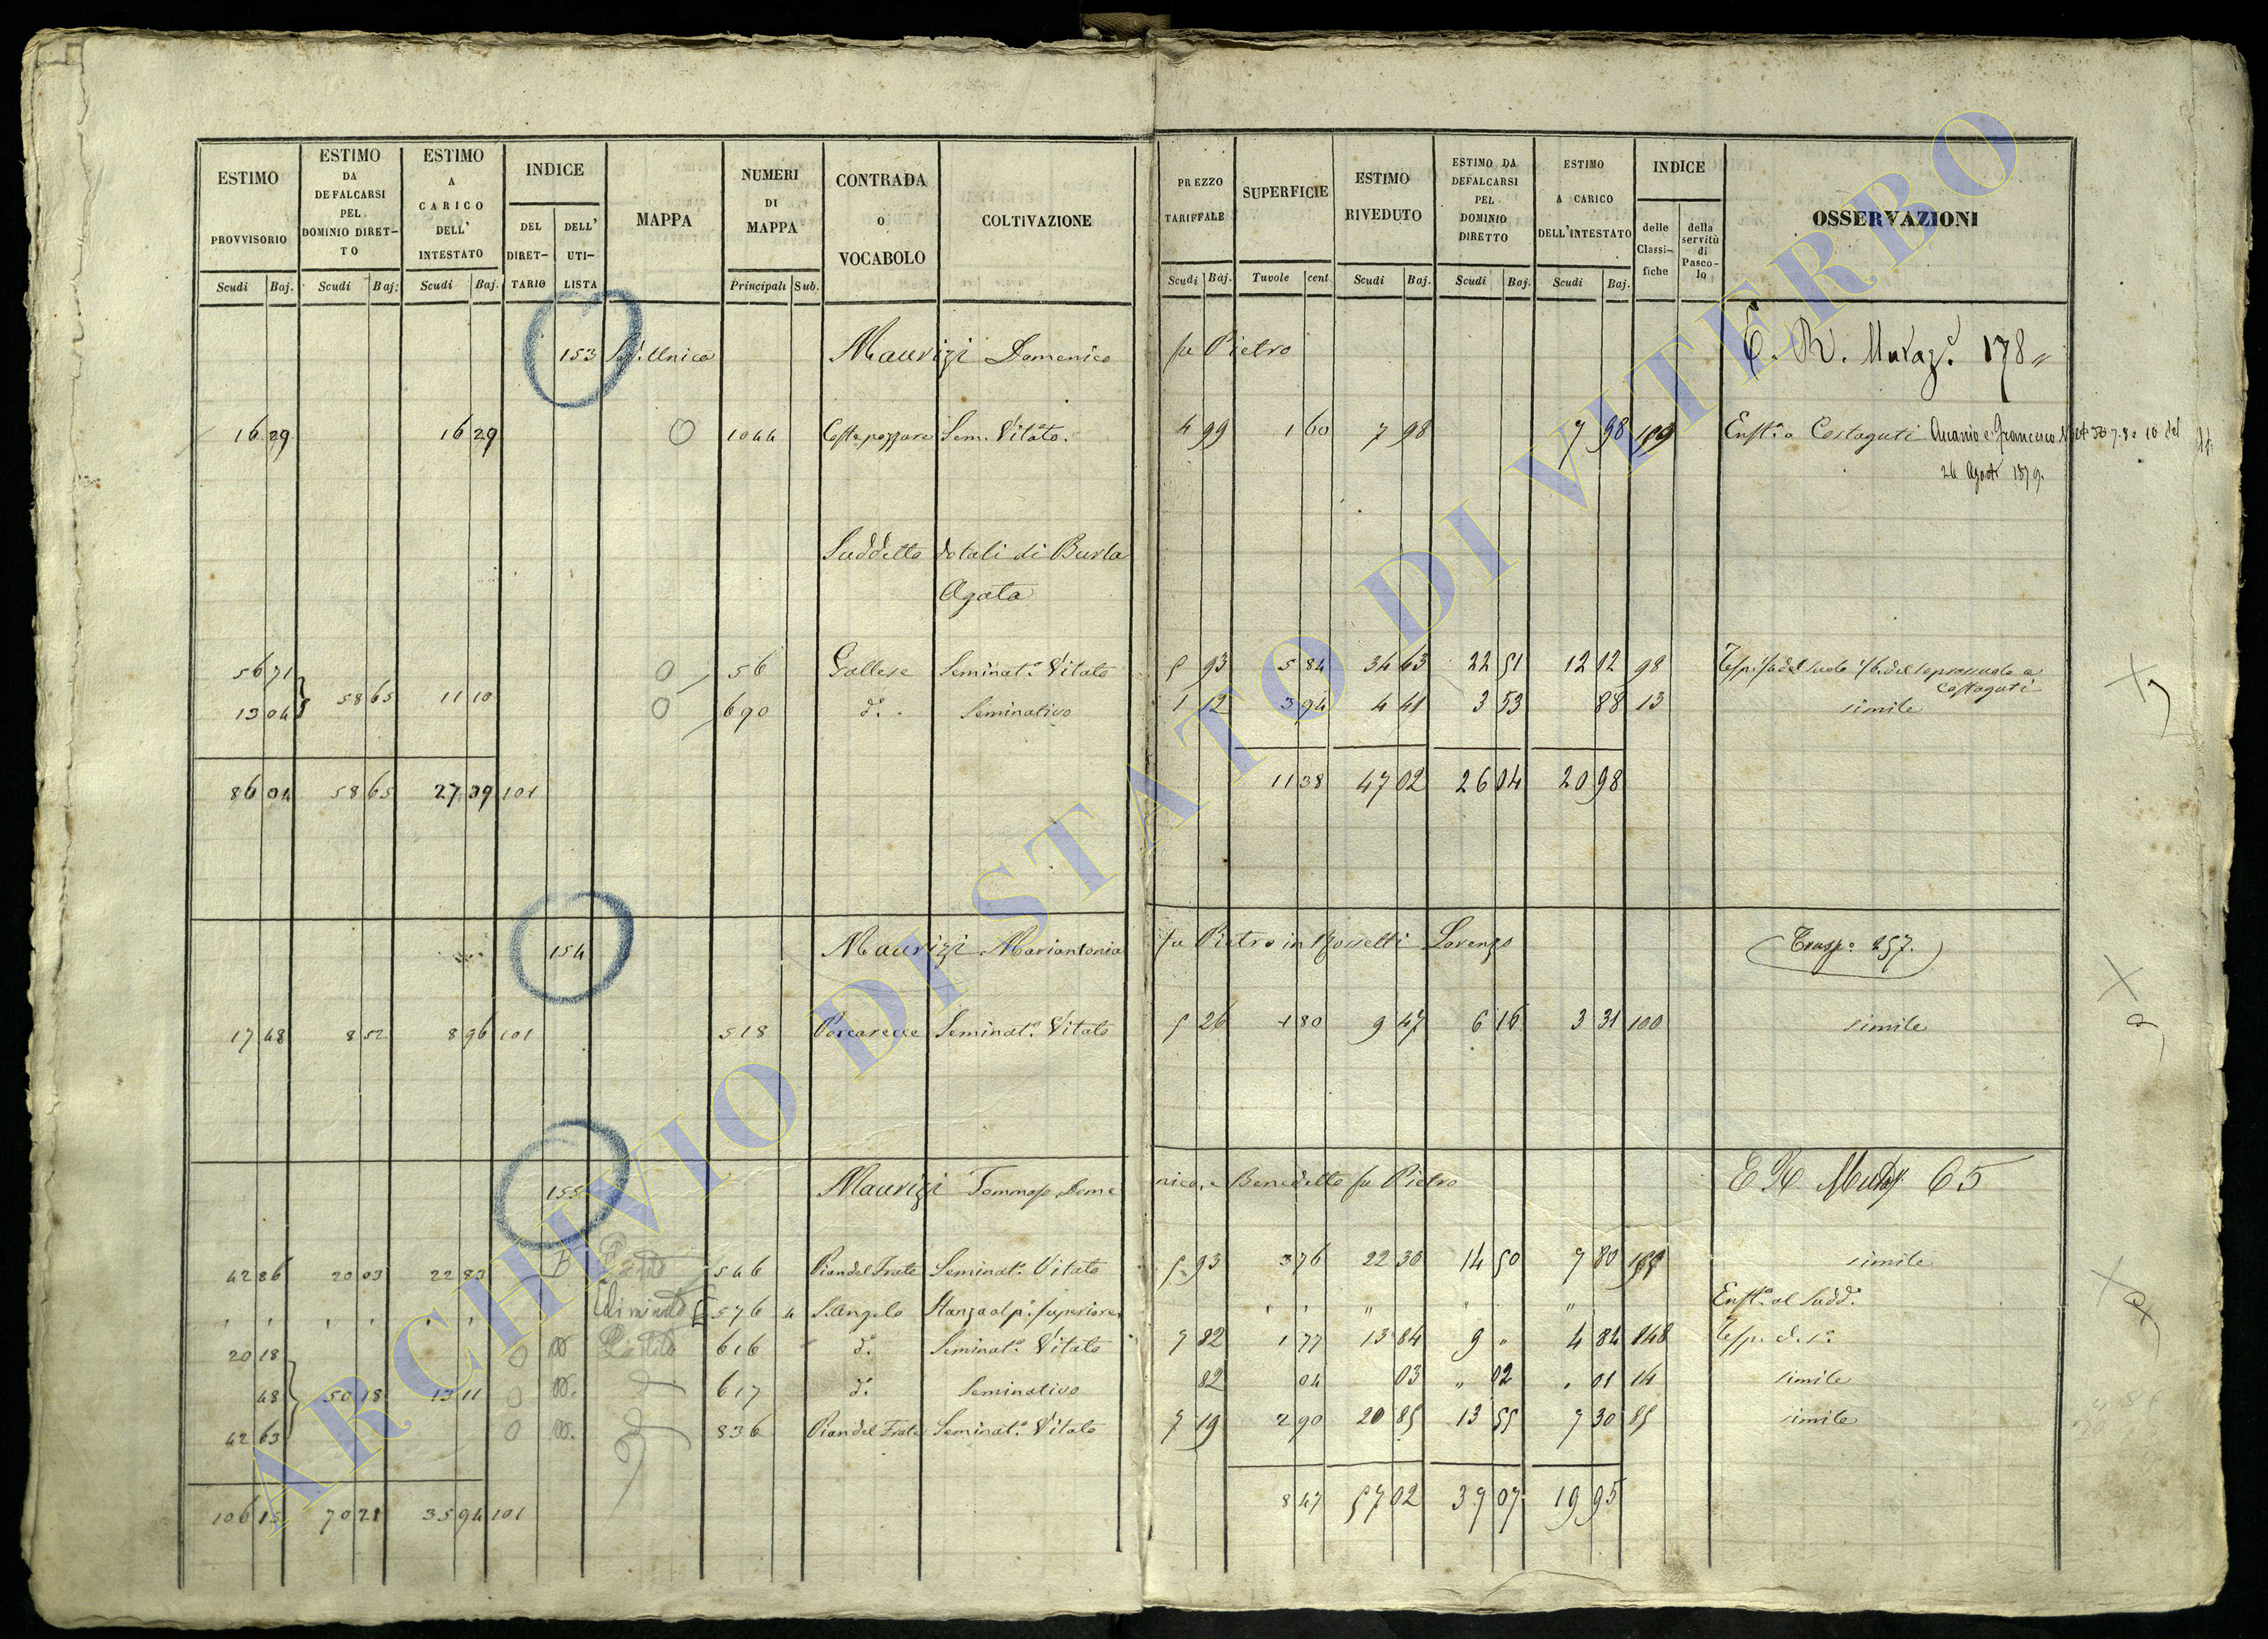 ESTIMO PROVVISORIO
ESTIMO DA DEFALCARSI PEL DOMINIO DIRETTO
ESTIMO A CARICO DELL' INTESTATO
INDICE
DEL DIRETTARIO
DELL' UTILISTA
MAPPA
NUMERI DI MAPPA
CONTRADA o VOCABOLO
COLTIVAZIONE
PREZZO TARIFFALE
SUPERFICIE
ESTIMO RIVEDUTO
ESTIMO DA DEFALCARSI PEL DOMINIO DIRETTO
ESTIMO A CARICO DELL'INTESTATO
INDICE
delle Classifiche
della servitù di Pascolo
OSSERVAZIONI
Scudi Baj. Scudi Baj. Scudi Baj. Principali Sub. Scudi Baj. Tavole cent. Scudi Baj. Scudi Baj. Scudi Baj.
153 Unica Maurizi Domenico fu Pietro 178
16 29 16 29 1044 Sem. Vitato. 4 99 1 60 7 98 7 98 Enft.a Costaguti Ascanio e Francesco
24 Agosto 1879.
Suddetto dotali di Burla
Agata
56 71 56 Gallese Seminat.o Vitato 5 93 5 84 34 63 22 51 12 12 98
Costaguti
13 04 58 65 11 10 690 d.o Seminativo 1 12 3 94 4 41 3 53 88 13 simile
86 04 58 65 27 39 101 11 38 47 02 26 04 20 98
154 Maurizi Mariantonia fu Pietro in Rosselli Lorenzo
17 48 8 52 8 96 101 518 Porcarecce Seminat.o Vitato 5 26 1 80 9 47 6 16 3 31 100 simile
155 Maurizi Tommaso, Domenico, e Benedetto fu Pietro 65
42 86 20 03 22 83 546 Pian del Frate Seminat.o Vitato 5 93 3 76 22 30 14 50 7 80 simile
576 S. Angelo Stanza al p.o superiore Enft.o al Sudd.o
20 18 616 d.o Seminat.o Vitato 7 82 1 77 13 84 9 " 4 84 148
48 50 18 13 11 617 d.o Seminativo 82 04 03 " 02 " 01 14 simile
42 63 836 Pian del Frate Seminat.o Vitato 7 19 2 90 20 85 13 55 7 30 85 simile
106 15 70 21 35 94 101 8 47 57 02 37 07 19 95
ARCHIVIO DI STATO DI VITERBO